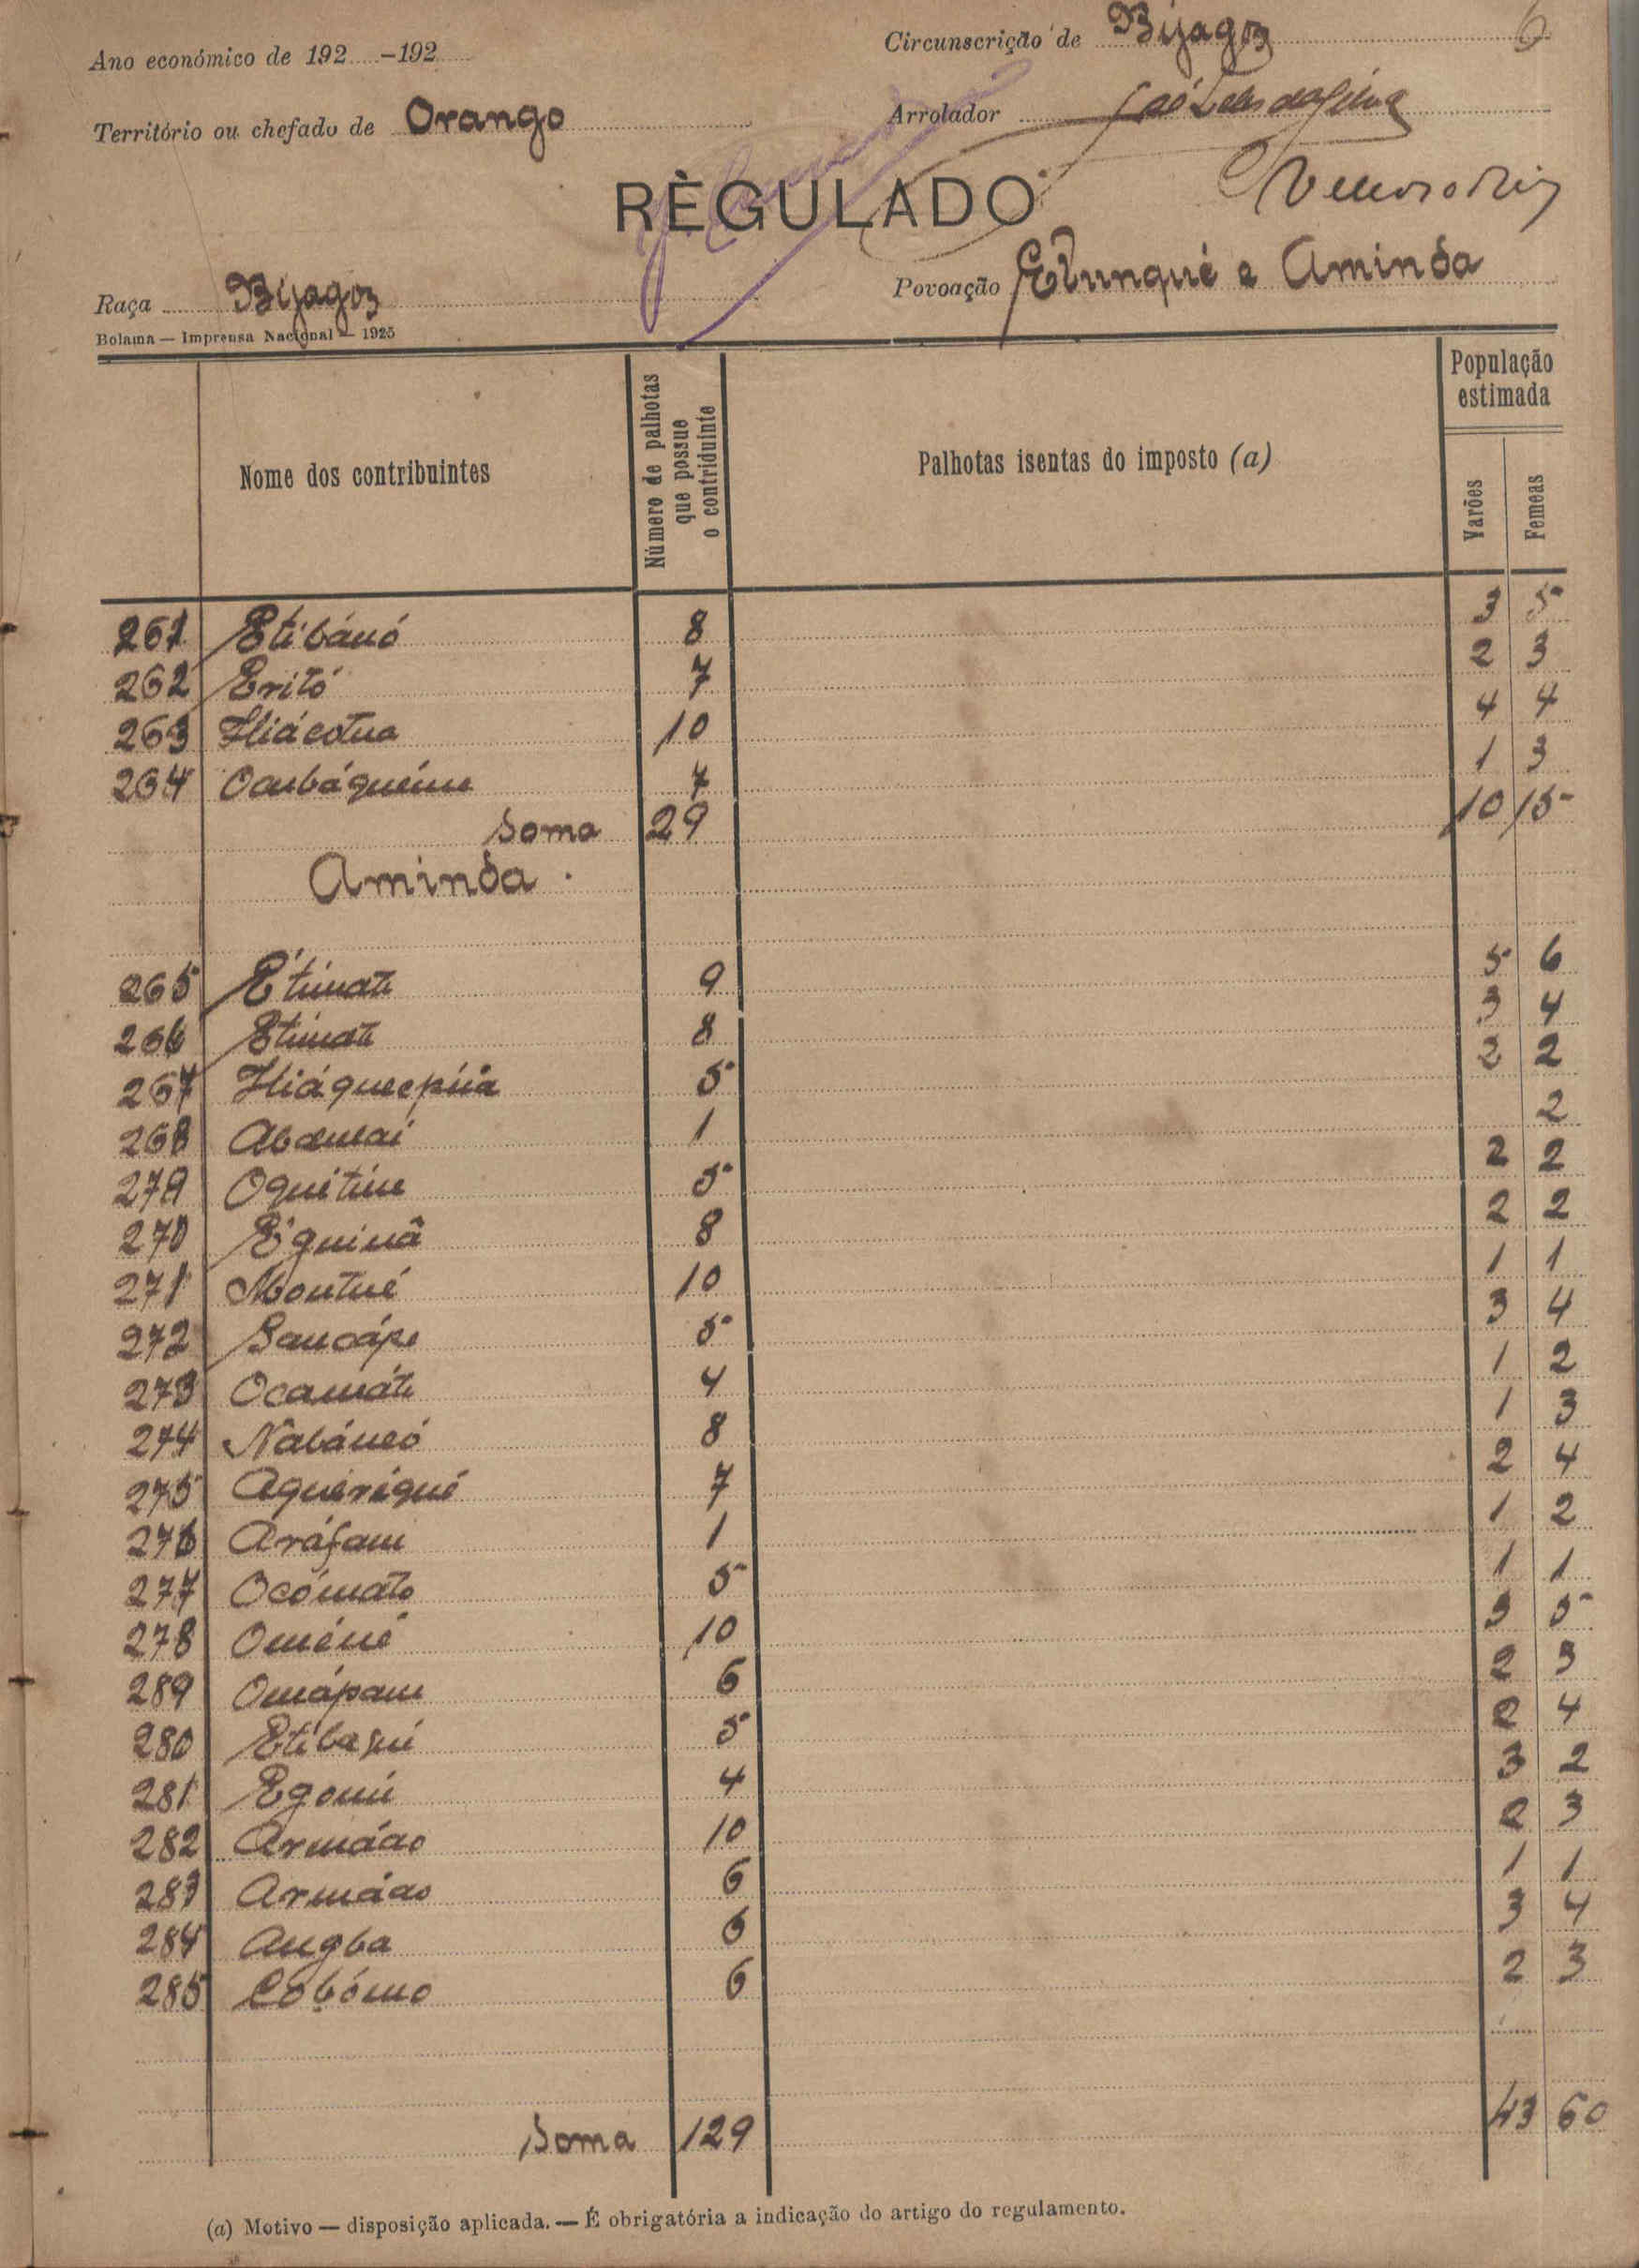 Ano económico de 192 -192
Circunscrição de Bijagoz 6
Território ou chefado de Orango
Arrolador
RÈGULADO
Raça Bijagoz
Povoação Etunqué e Aminda
Bolama — Imprensa Nacional — 1925
Nome dos contribuintes
Número de palhotas que possue o contriduinte
Palhotas isentas do imposto (a)
População estimada
Varões
Femeas
261 Etibánó 8 3 5
262 Eritó 7 2 3
263 Iliácotua 10 4 4
264 7 1 3
Soma 29 10 15
Aminda
265 9 5 6
266 8 3 4
267 5 2 2
268 Abdulai 1 2
279 Oquitine 5 2 2
270 Equinâ 8 2 2
271 Montué 10 1 1
272 Sancápe 5 3 4
273 Ocamáte 4 1 2
274 Nabáneó 8 1 3
275 Aqueriqué 7 2 4
276 Aráfam 1 1 2
277 Ocómato 5 1 1
278 Oméné 10 3 5
289 Omápam 6 2 3
280 5 2 4
281 Egomi 4 3 2
282 Armádo 10 2 3
283 Armádo 6 1 1
284 Augba 6 3 4
285 Cobómo 6 2 3
Soma 129 43 60
(a) Motivo — disposição aplicada. — É obrigatória a indicação do artigo do regulamento.